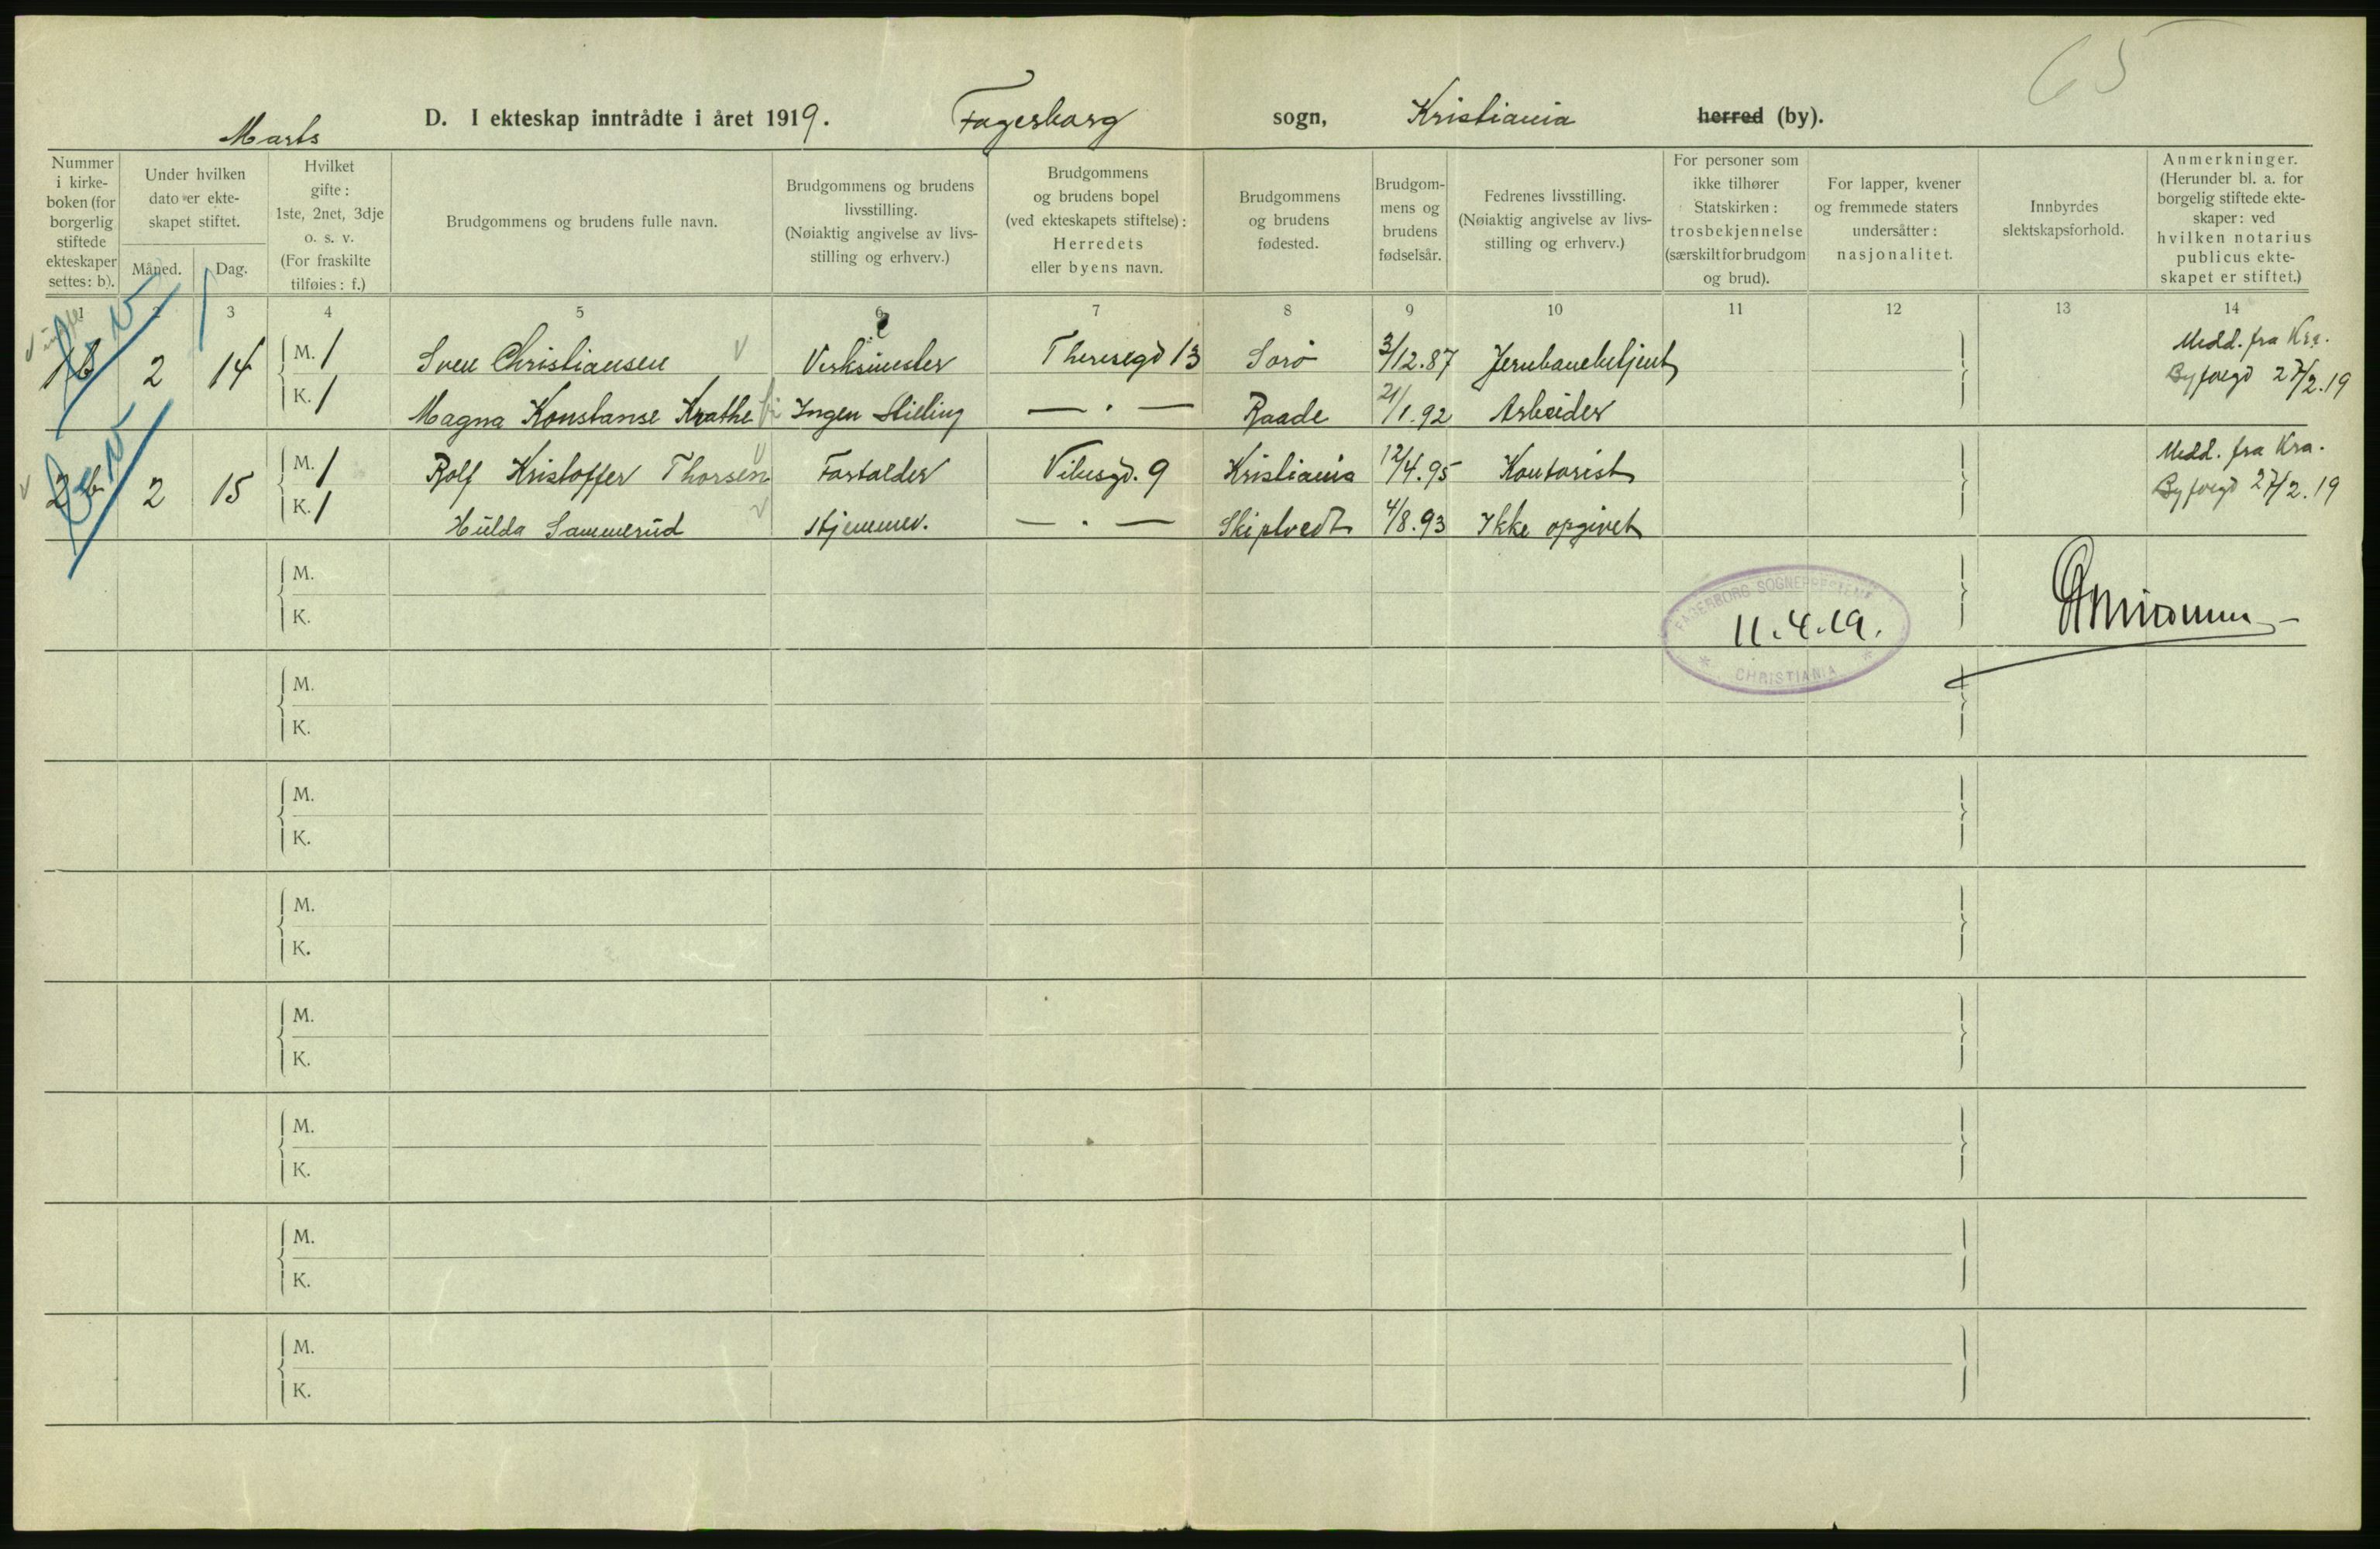 65
Marts
D. I ekteskap inntrådte i året 1919. Fagerborg sogn, Kristiania herred (by).
Nummer i kirke-boken (for borgerlig stiftede ekteskaper settes: b).
Under hvilken dato er ekte-skapet stiftet.
Måned. Dag.
Hvilket gifte: 1ste, 2net, 3dje o. s. v. (For fraskilte tilføies: f.)
Brudgommens og brudens fulle navn.
Brudgommens og brudens livsstilling. (Nøiaktig angivelse av livs-stilling og erhverv.)
Brudgommens og brudens bopel (ved ekteskapets stiftelse): Herredets eller byens navn.
Brudgommens og brudens fødested.
Brudgom-mens og brudens fødselsår.
Fedrenes livsstilling. (Nøiaktig angivelse av livs-stilling og erhverv.)
For personer som ikke tilhører Statskirken: trosbekjennelse (særskilt for brudgom og brud).
For lapper, kvener og fremmede staters undersåtter: nasjonalitet.
Innbyrdes slektskapsforhold.
Anmerkninger. (Herunder bl. a. for borgelig stiftede ekte-skaper: ved hvilken notarius publicus ekte-skapet er stiftet.)
1 2 3 4 5 6 7 8 9 10 11 12 13 14
1b 2 14 M. 1 Sven Christiansen Verksmester Theresegd 13 Sorö 3/12.87 Jernbanebetjent Medd. fra Kra.
K. 1 Magna Konstanse Krathe Ingen Stilling — . — Raade 21/1.92 Arbeider Byfoegd 27/2.19
2b 2 15 M. 1 Rolf Kristoffer Thorsen Fortolder Vibesgd. 9 Kristiania 12/4.95 Kontorist Medd. fra Kra.
K. 1 Hulda Sammerud Hjemmev. — . — Skiptvedt 4/8.93 Ikke opgivet Byfoegd 27/2.19
M.
K.
FAGERBORG SOGNEPRESTEMB
11.4.19.
* CHRISTIANIA *
M.
K.
M.
K.
M.
K.
M.
K.
M.
K.
M.
K.
M.
K.